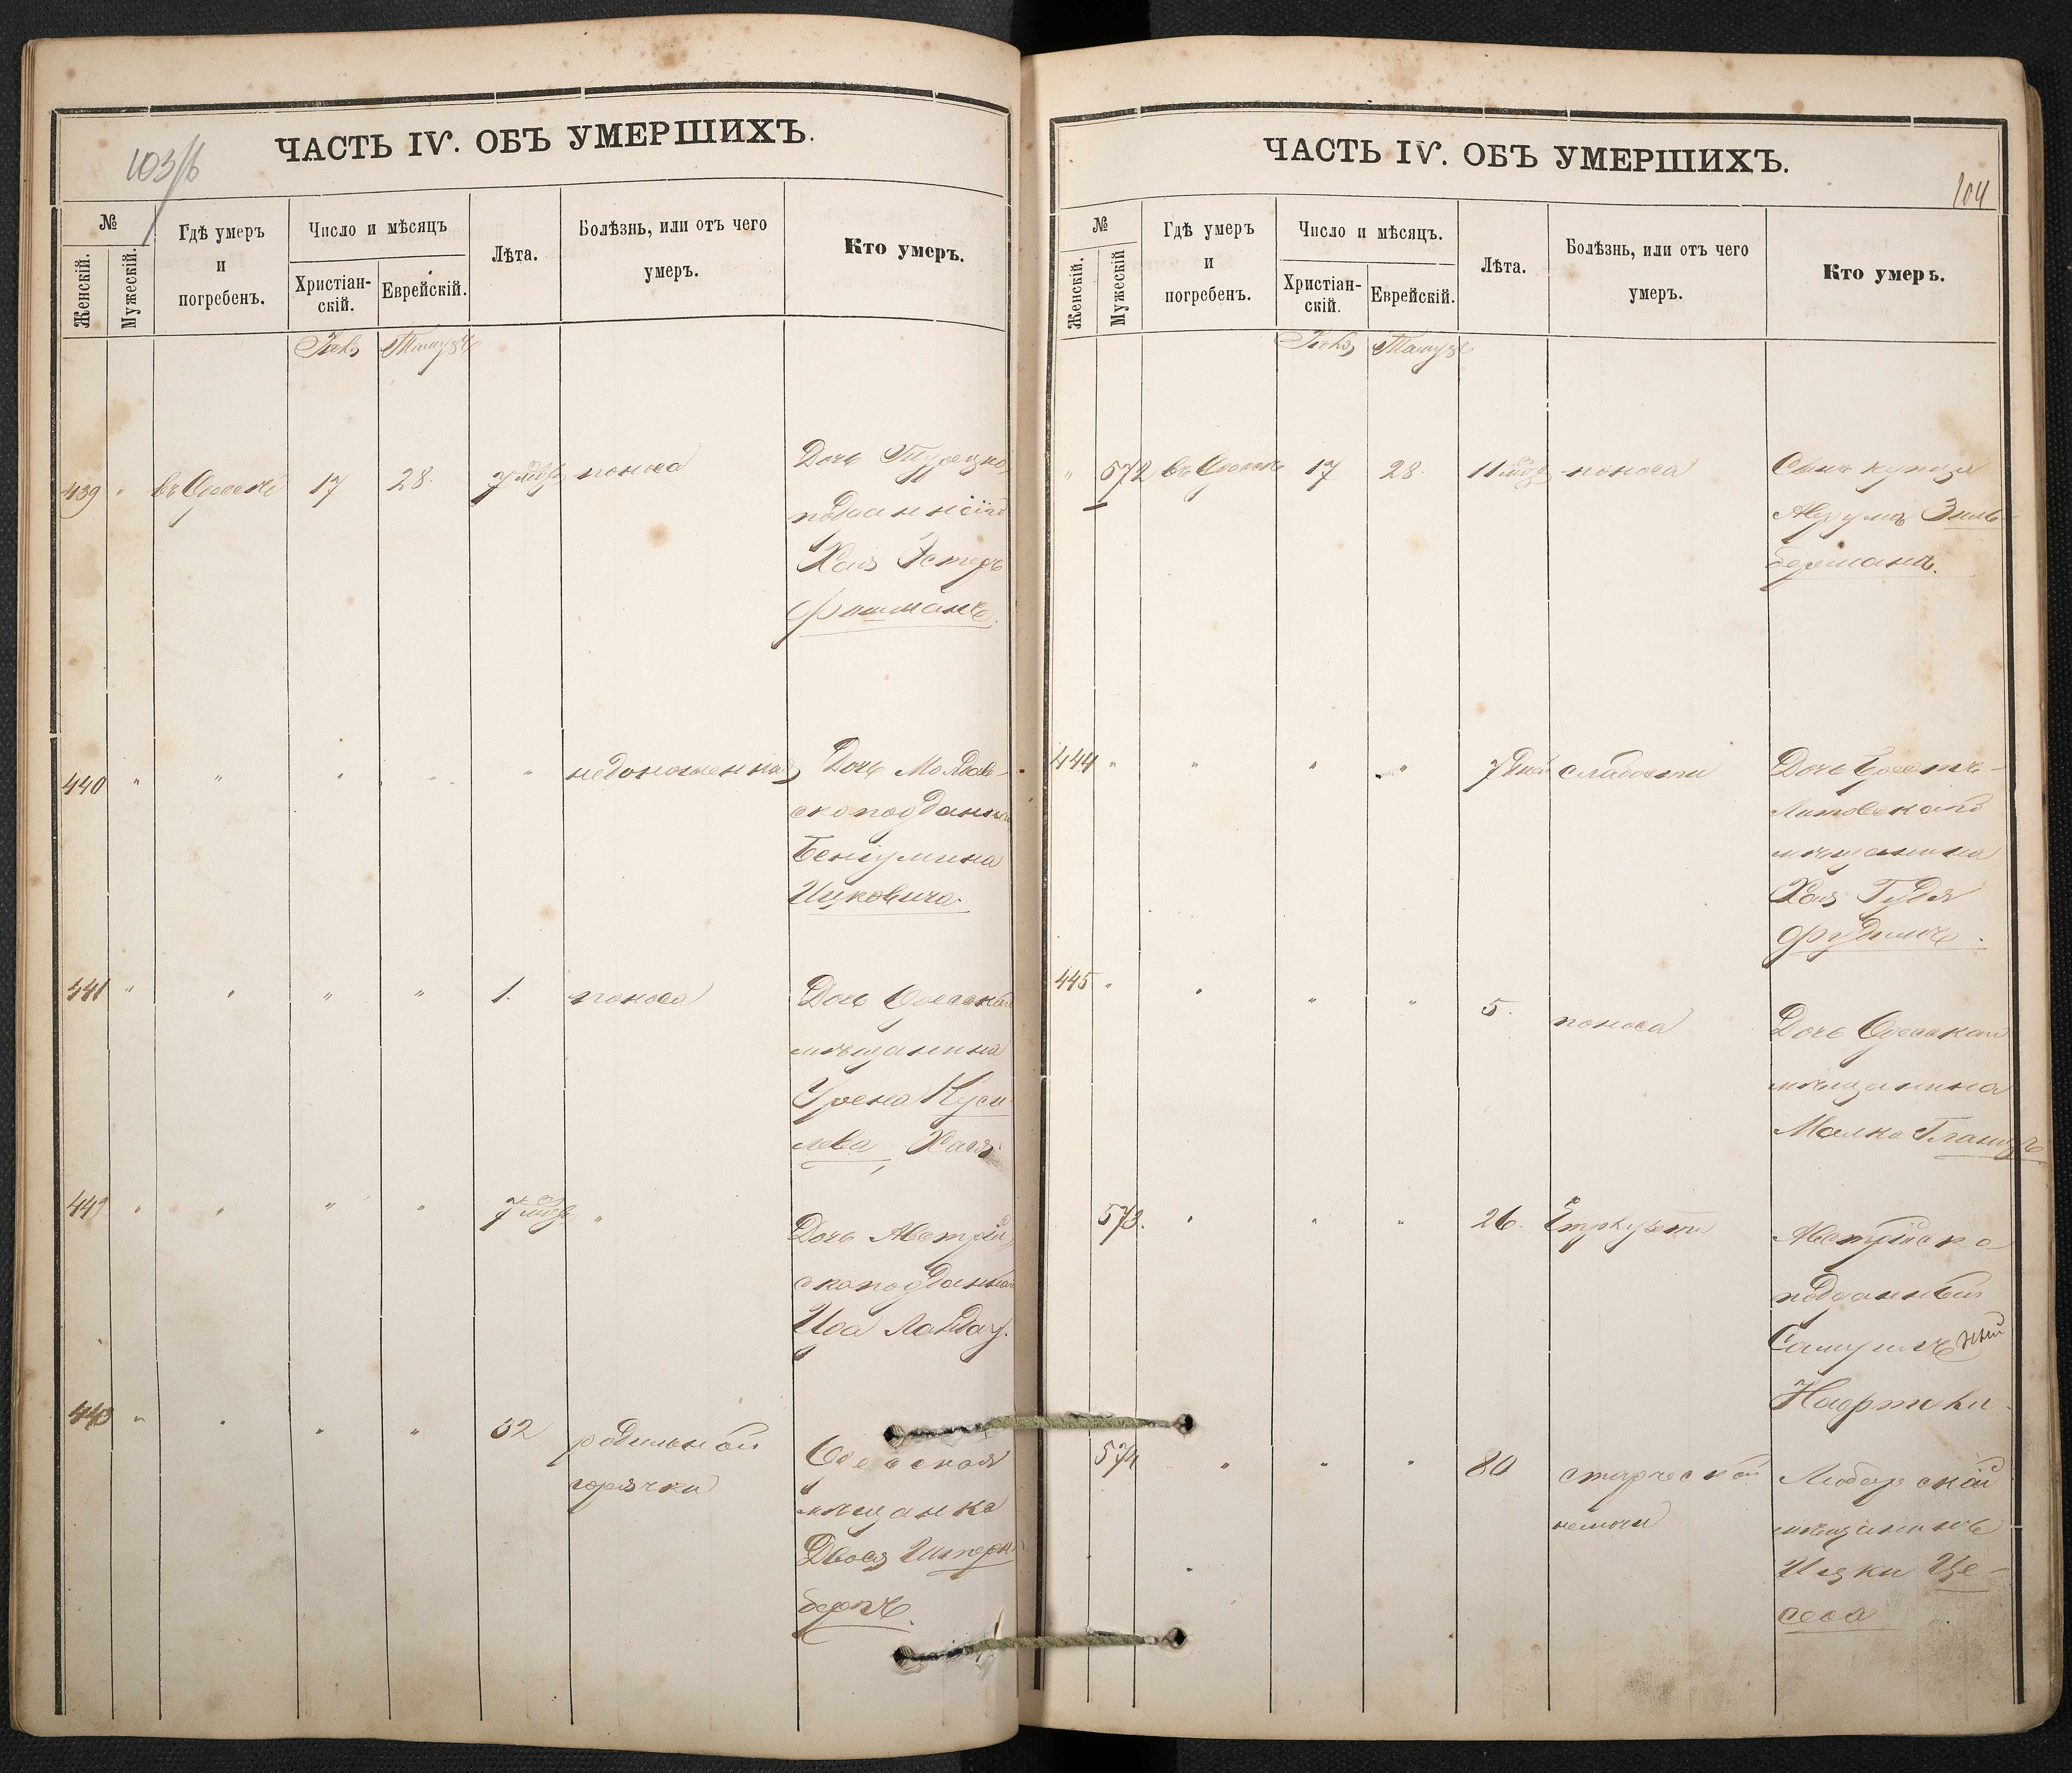 ЧАСТЬ IV. ОБЪ УМЕРШИХЪ.
103/б
№
Женскій.
Мужескій.
Гдѣ умеръ
и
погребенъ.
Число и мѣсяцъ
Христіан-
скій.
Еврейскій.
Лѣта.
Болѣзнь, или отъ чего
умеръ.
Кто умеръ.
Тамузъ
439 " въ Одессѣ 17 28. 7 мѣс поноса
Дочь Турецко
подданнаго
Хая Эстеръ
Фишманъ.
440 " " " " " недоношенная
Дочь Молдав-
скоподданнаго
Беніумина
Ицковича.
441 " " " " 1. поноса
Дочь Одесскаго
мѣщанина
Куси
лева Хая
442 " " " " 7 мѣс "
Дочь Австрій
скоподданнаго
Ида Ландау.
443 " " " " 32 родильной
горячки
Одесская
мѣщанка
Двося Штерн
бергъ.
ЧАСТЬ IV. ОБЪ УМЕРШИХЪ.
104
№
Женскій.
Мужескій
Гдѣ умеръ
и
погребенъ.
Число и мѣсяцъ.
Христіан-
скій.
Еврейскій.
Лѣта.
Болѣзнь, или отъ чего
умеръ.
Кто умеръ.
Тамузъ
" 572 въ Одессѣ 17 28. 11 мѣс поноса
Сынъ купца
Аврумъ Зиль-
берманъ.
444 " " " " 7 дней слабости
Дочь Брестъ-
Литовскаго
мѣщанина
Хая Гудя
Фридманъ.
445 " " " " 5. поноса
Дочь Одесскаго
мѣщанина
Малка Гланцъ
573. " " " 26.
Австрійско
подданный
Самуилъ
574 " " " 80 старческой
немочи
Любарскій
мѣщанинъ
Ицки Це-
сеса